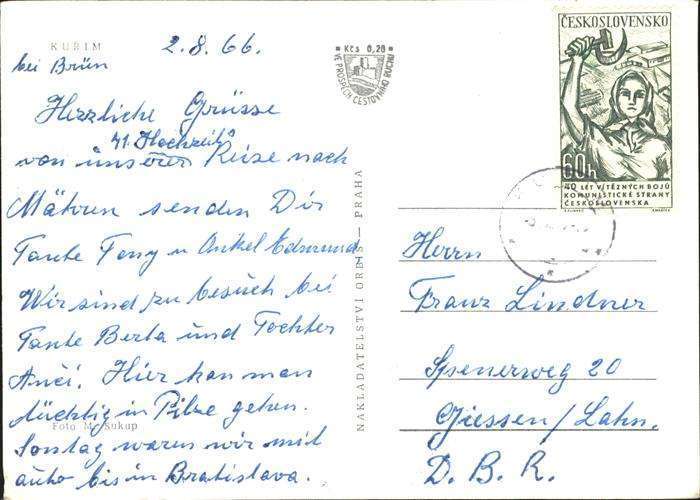 KUŘIM
2.8.66.
bei Brün
Herzliche Grüsse
41. Hochzeits
von unserer Reise nach
Mähren senden Dir
Tante Tony u Onkel Edmund
Wir sind zu besuch bei
Tante Berta und Tochter
Anči. Hier kan man
tüchtig in Pilze gehen.
Sontag waren wir mit
auto bis in Bratislava.
Foto M. Sukup
NAKLADATELSTVÍ ORBIS — PRAHA
Kčs 0,20
VE PROSPĚCH CESTOVNÍHO RUCHU
ČESKOSLOVENSKO
60h
40 LET VÍTĚZNÝCH BOJŮ
KOMUNISTICKÉ STRANY
ČESKOSLOVENSKA
Herrn
Franz Lindner
Spenerweg 20
Giessen/Lahn.
D.B.R.